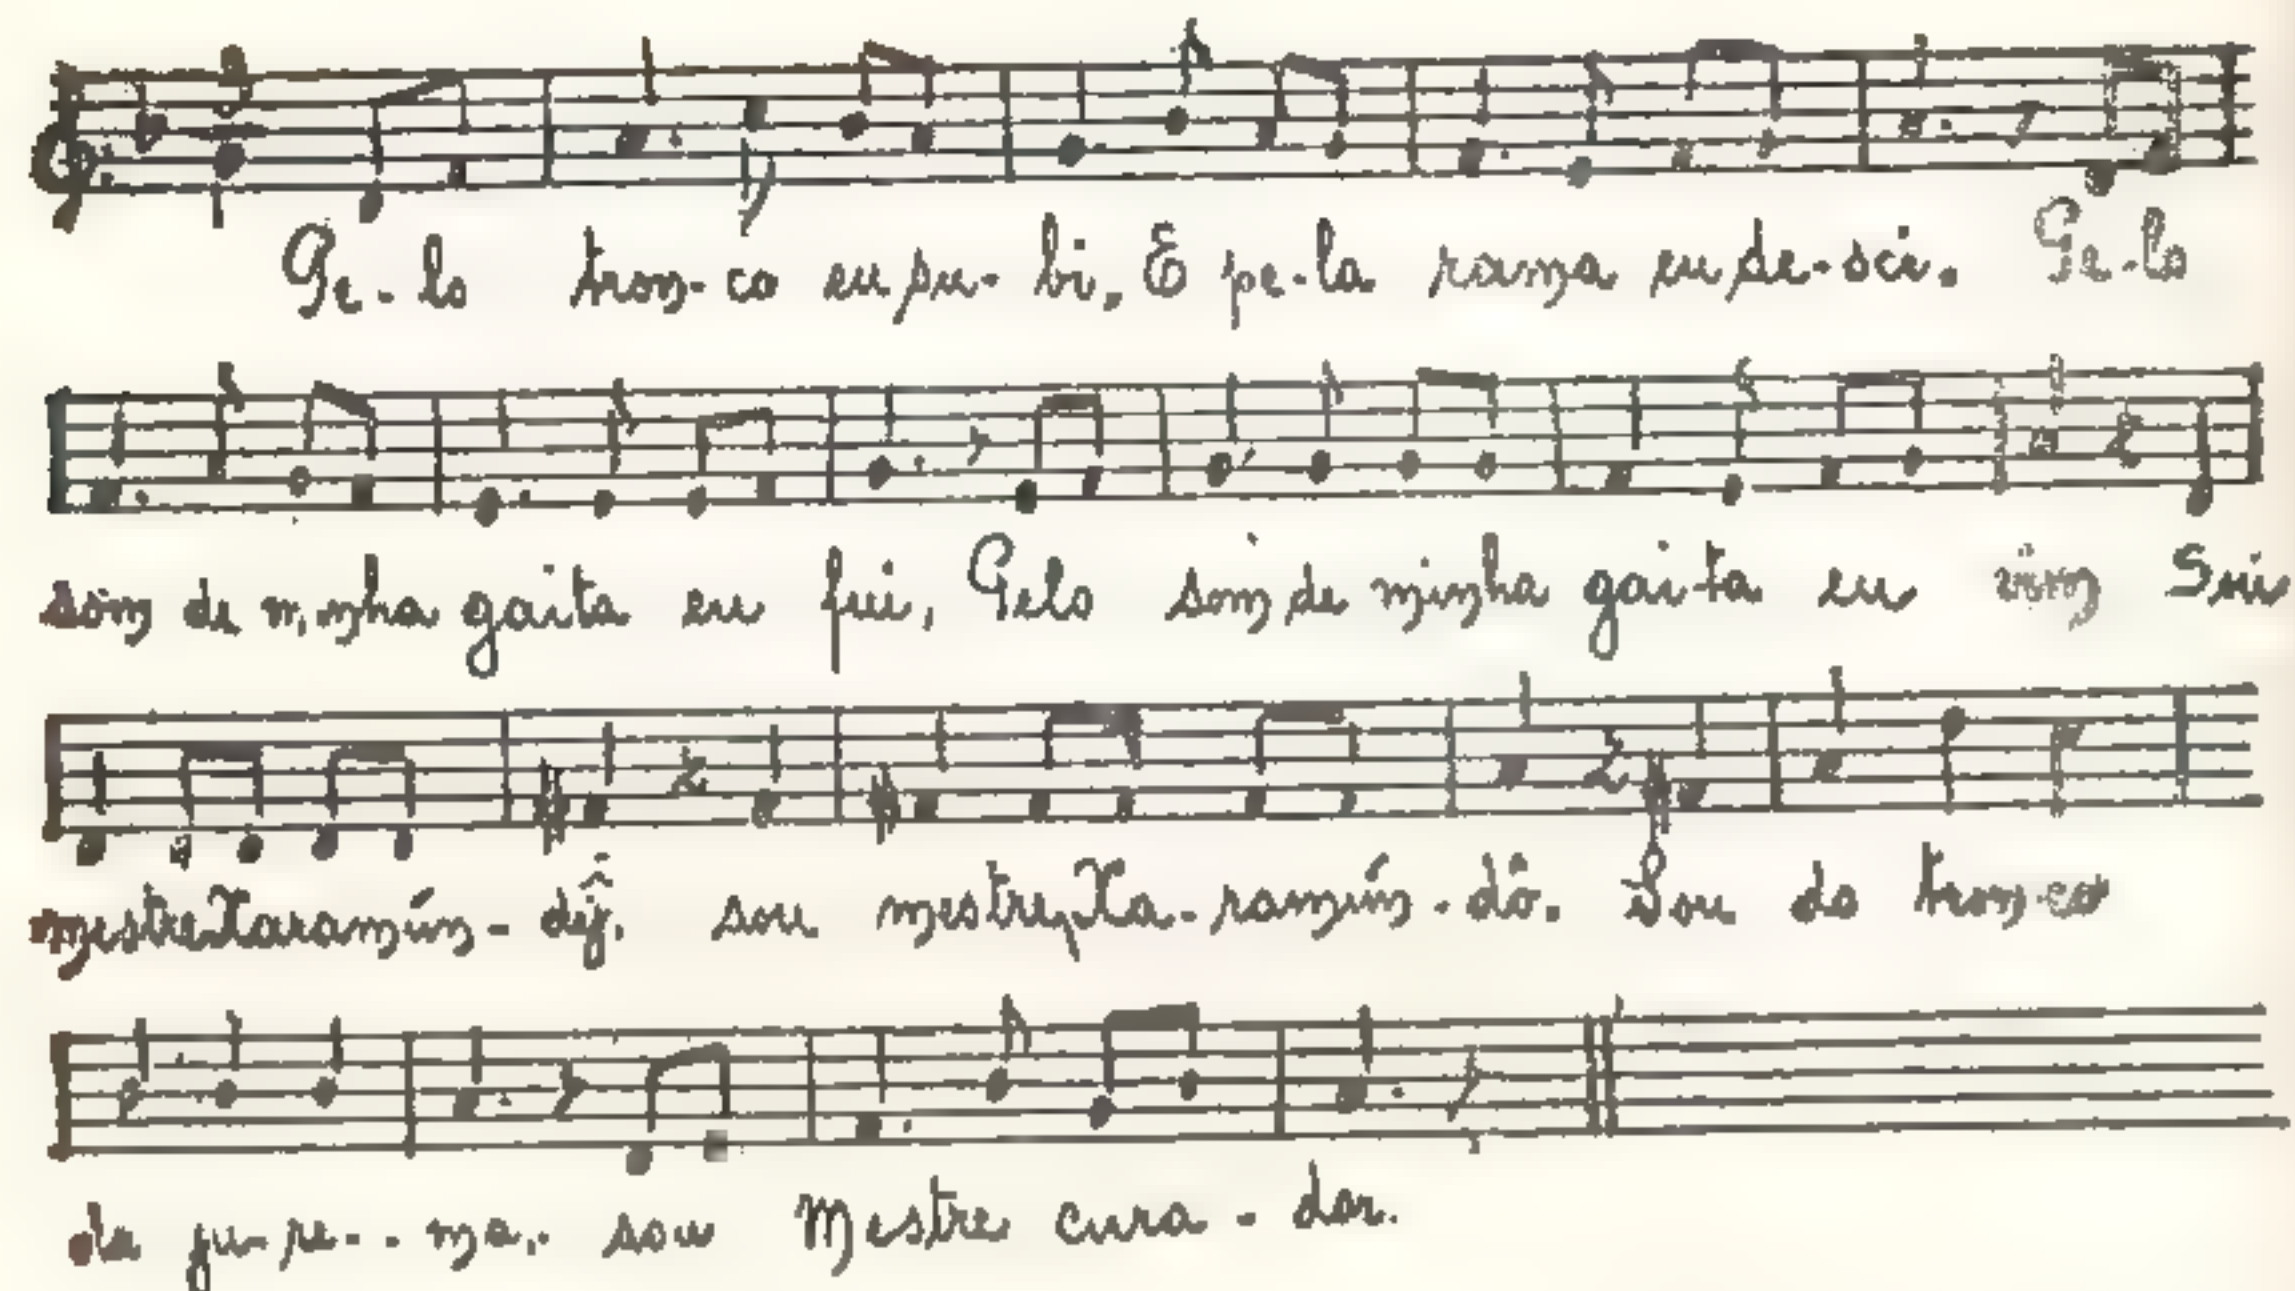 Pe-lo tron-co eu su-bi, E pe-la rama eu de-sci. Pe-lo
som de minha gaita eu fui, Pelo som de minha gaita eu vim Sou
mestre Xaramún-dy. sou mestre Xa-ramún-dô. Sou do tron-co
da ju-re--ma.. sou Mestre cura-dor.